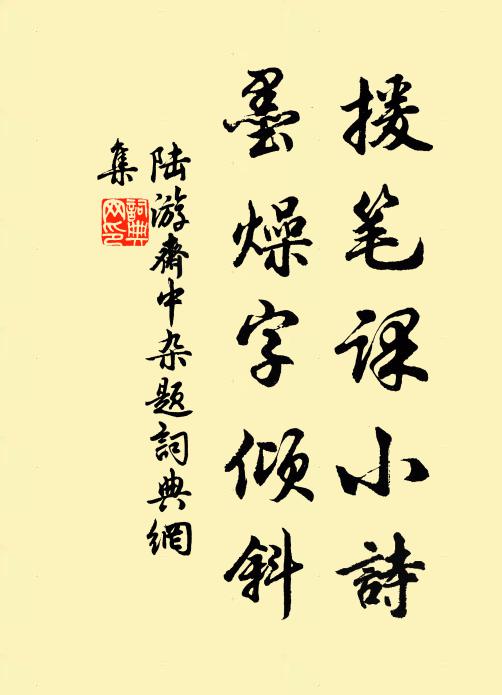 援笔课小詩
墨燥字倾斜
陆游斋中杂题詞典網
集
詞典网印